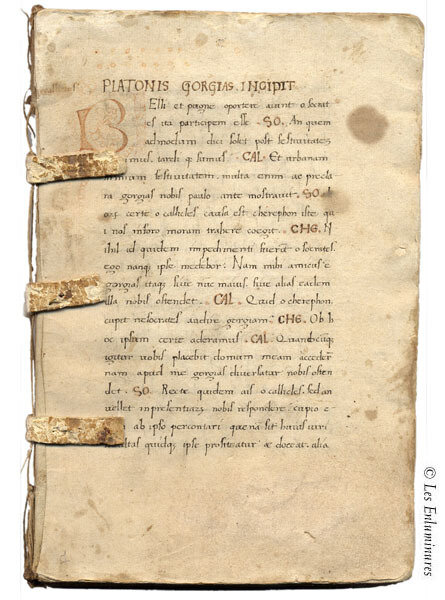 PLATONIS GORGIAS. INCIPIT
BElli et pugne oportere aiunt o socrat
es ita participem esse. SO. An quem
admodum dici solet post festiuitatem
uenimus, tardi q sumus. CAL. Et urbanam
festiuitatem. multa enim ae precla
ra gorgias nobis paulo ante mostrauit. SO.
certe o callicles causa est cherephon iste qu
i nos in foro moram trahere coegit. CHE. N
ihil id quidem impedimenti fuerit o socrates.
ego nanq ipse medebor. Nam mihi amicus e
gorgias itaq siue nuc mauis, siue alias eadem
illa nobis ostendet. CAL. Quid o cherephon.
cupit ne socrates audire gorgiam. CHE. Ob h
oc ipsum certe aderamus. CAL. Quandocuq
igitur uobis placebit domum meam acceder
nam apud me gorgias diuersatur nobis osten
det. SO. Recte quidem ais o callicles. sed an
uellet in presentiars nobis respondere. cupio e
ab ipso percontari quenam sit huius uiri
facultas quidq ipse profiteatur ae doceat. alia
© Les Enluminures